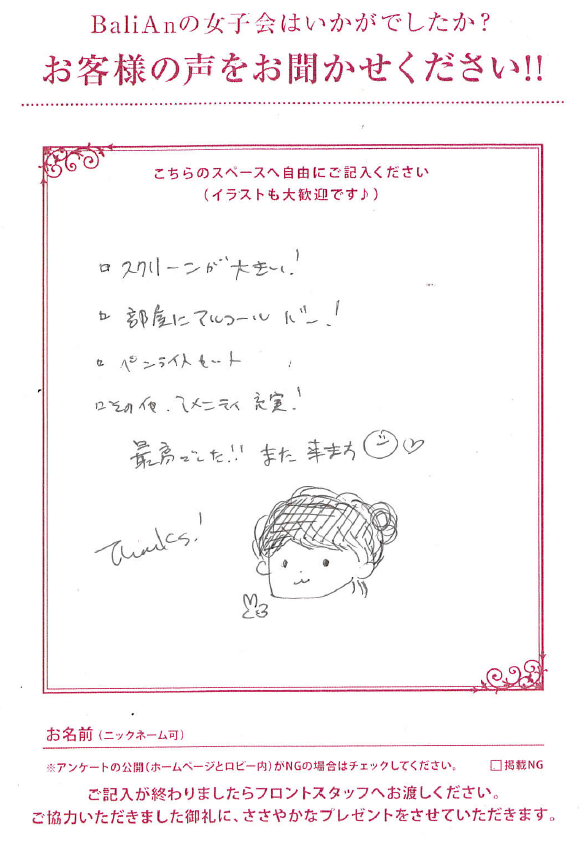 BaliAnの女子会はいかがでしたか？
お客様の声をお聞かせください!!
こちらのスペースへ自由にご記入ください
（イラストも大歓迎です♪）
□ スクリーンが大きい!
□ 部屋にアルコールバー!
□ ペンライトセット
□ その他、アメニティ充実!
最高でした!! また来ます ♡
Thanks!
お名前（ニックネーム可）
※アンケートの公開（ホームページとロビー内）がNGの場合はチェックしてください。 □掲載NG
ご記入が終わりましたらフロントスタッフへお渡しください。
ご協力いただきました御礼に、ささやかなプレゼントをさせていただきます。